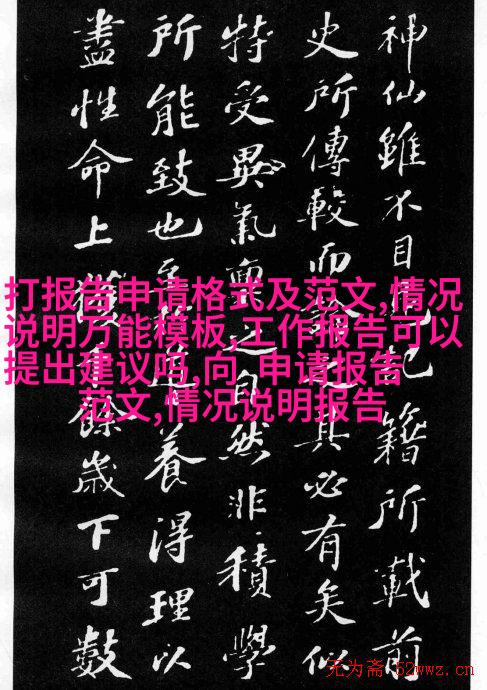 神仙雖不目見記籍所載前
史所傳較而論之其必有矣似
特受異氣稟之自然非積學
所能致也至於導養得理以
盡性命上獲千餘歲下可數
打报告申请格式及范文,情况
说明万能模板,工作报告可以
提出建议吗,向 申请报告
范文,情况说明报告
无为斋·52wwz.cn